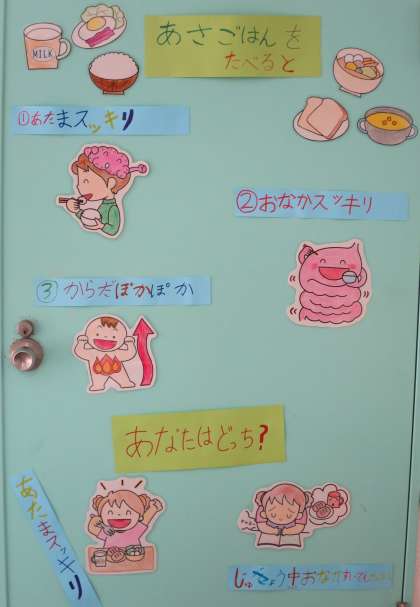 MILK
あさごはんを
たべると
①あたまスッキリ
②おなかスッキリ
③からだぽかぽか
あなたはどっち?
あたまスッキリ
じゅぎょう中おなか